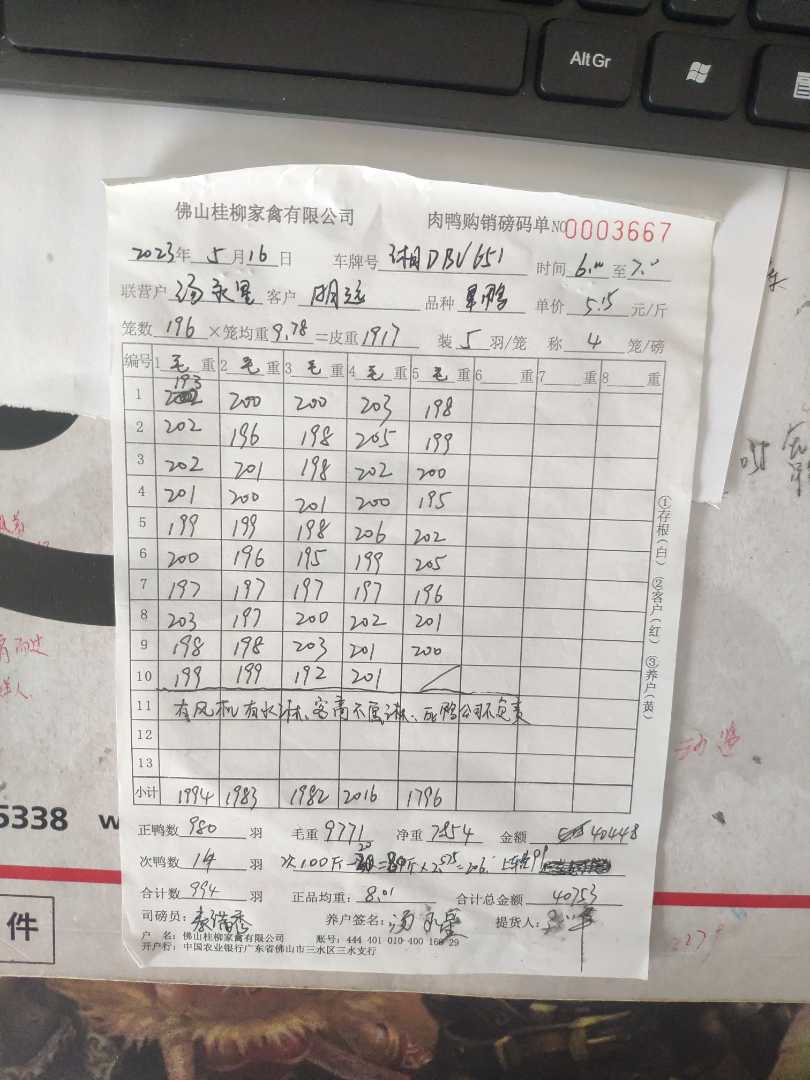 Alt Gr
佛山桂柳家禽有限公司 肉鸭购销磅码单 NO 0003667
2023年 5月16日 车牌号 湘DBV651 时间 6.00 至 7.0
联营户 汤永星 客户 明远 品种 单价 5.15 元/斤
笼数 196 ×笼均重 9.78 =皮重 1917 装 5 羽/笼 称 4 笼/磅
编号 1 毛 重 2 毛 重 3 毛 重 4 毛 重 5 毛 重 6 重 7 重 8 重
1 193 200 200 203 198
2 202 196 198 205 199
3 202 201 198 202 200
4 201 200 201 200 195
5 199 199 198 206 202
6 200 196 195 199 205
7 197 197 197 197 196
8 203 197 200 202 201
9 198 198 203 201 200
10 199 199 192 201
11 有风机有水淋、客商不愿淋、死鸭公司不负责
12
13
小计 1994 1983 1982 2016 1796
正鸭数 980 羽 毛重 9771 净重 7854 金额 40448
次鸭数 14 羽 次100斤-20=80斤×2.575=206.
合计数 994 羽 正品均重: 8.01 合计总金额 40753
司磅员: 养户签名: 汤永星 提货人:
户 名: 佛山桂柳家禽有限公司 账号: 444 401 010 400 168 29
开户行: 中国农业银行广东省佛山市三水区三水支行
①存根(白) ②客户(红) ③养户(黄)
5338 w
件